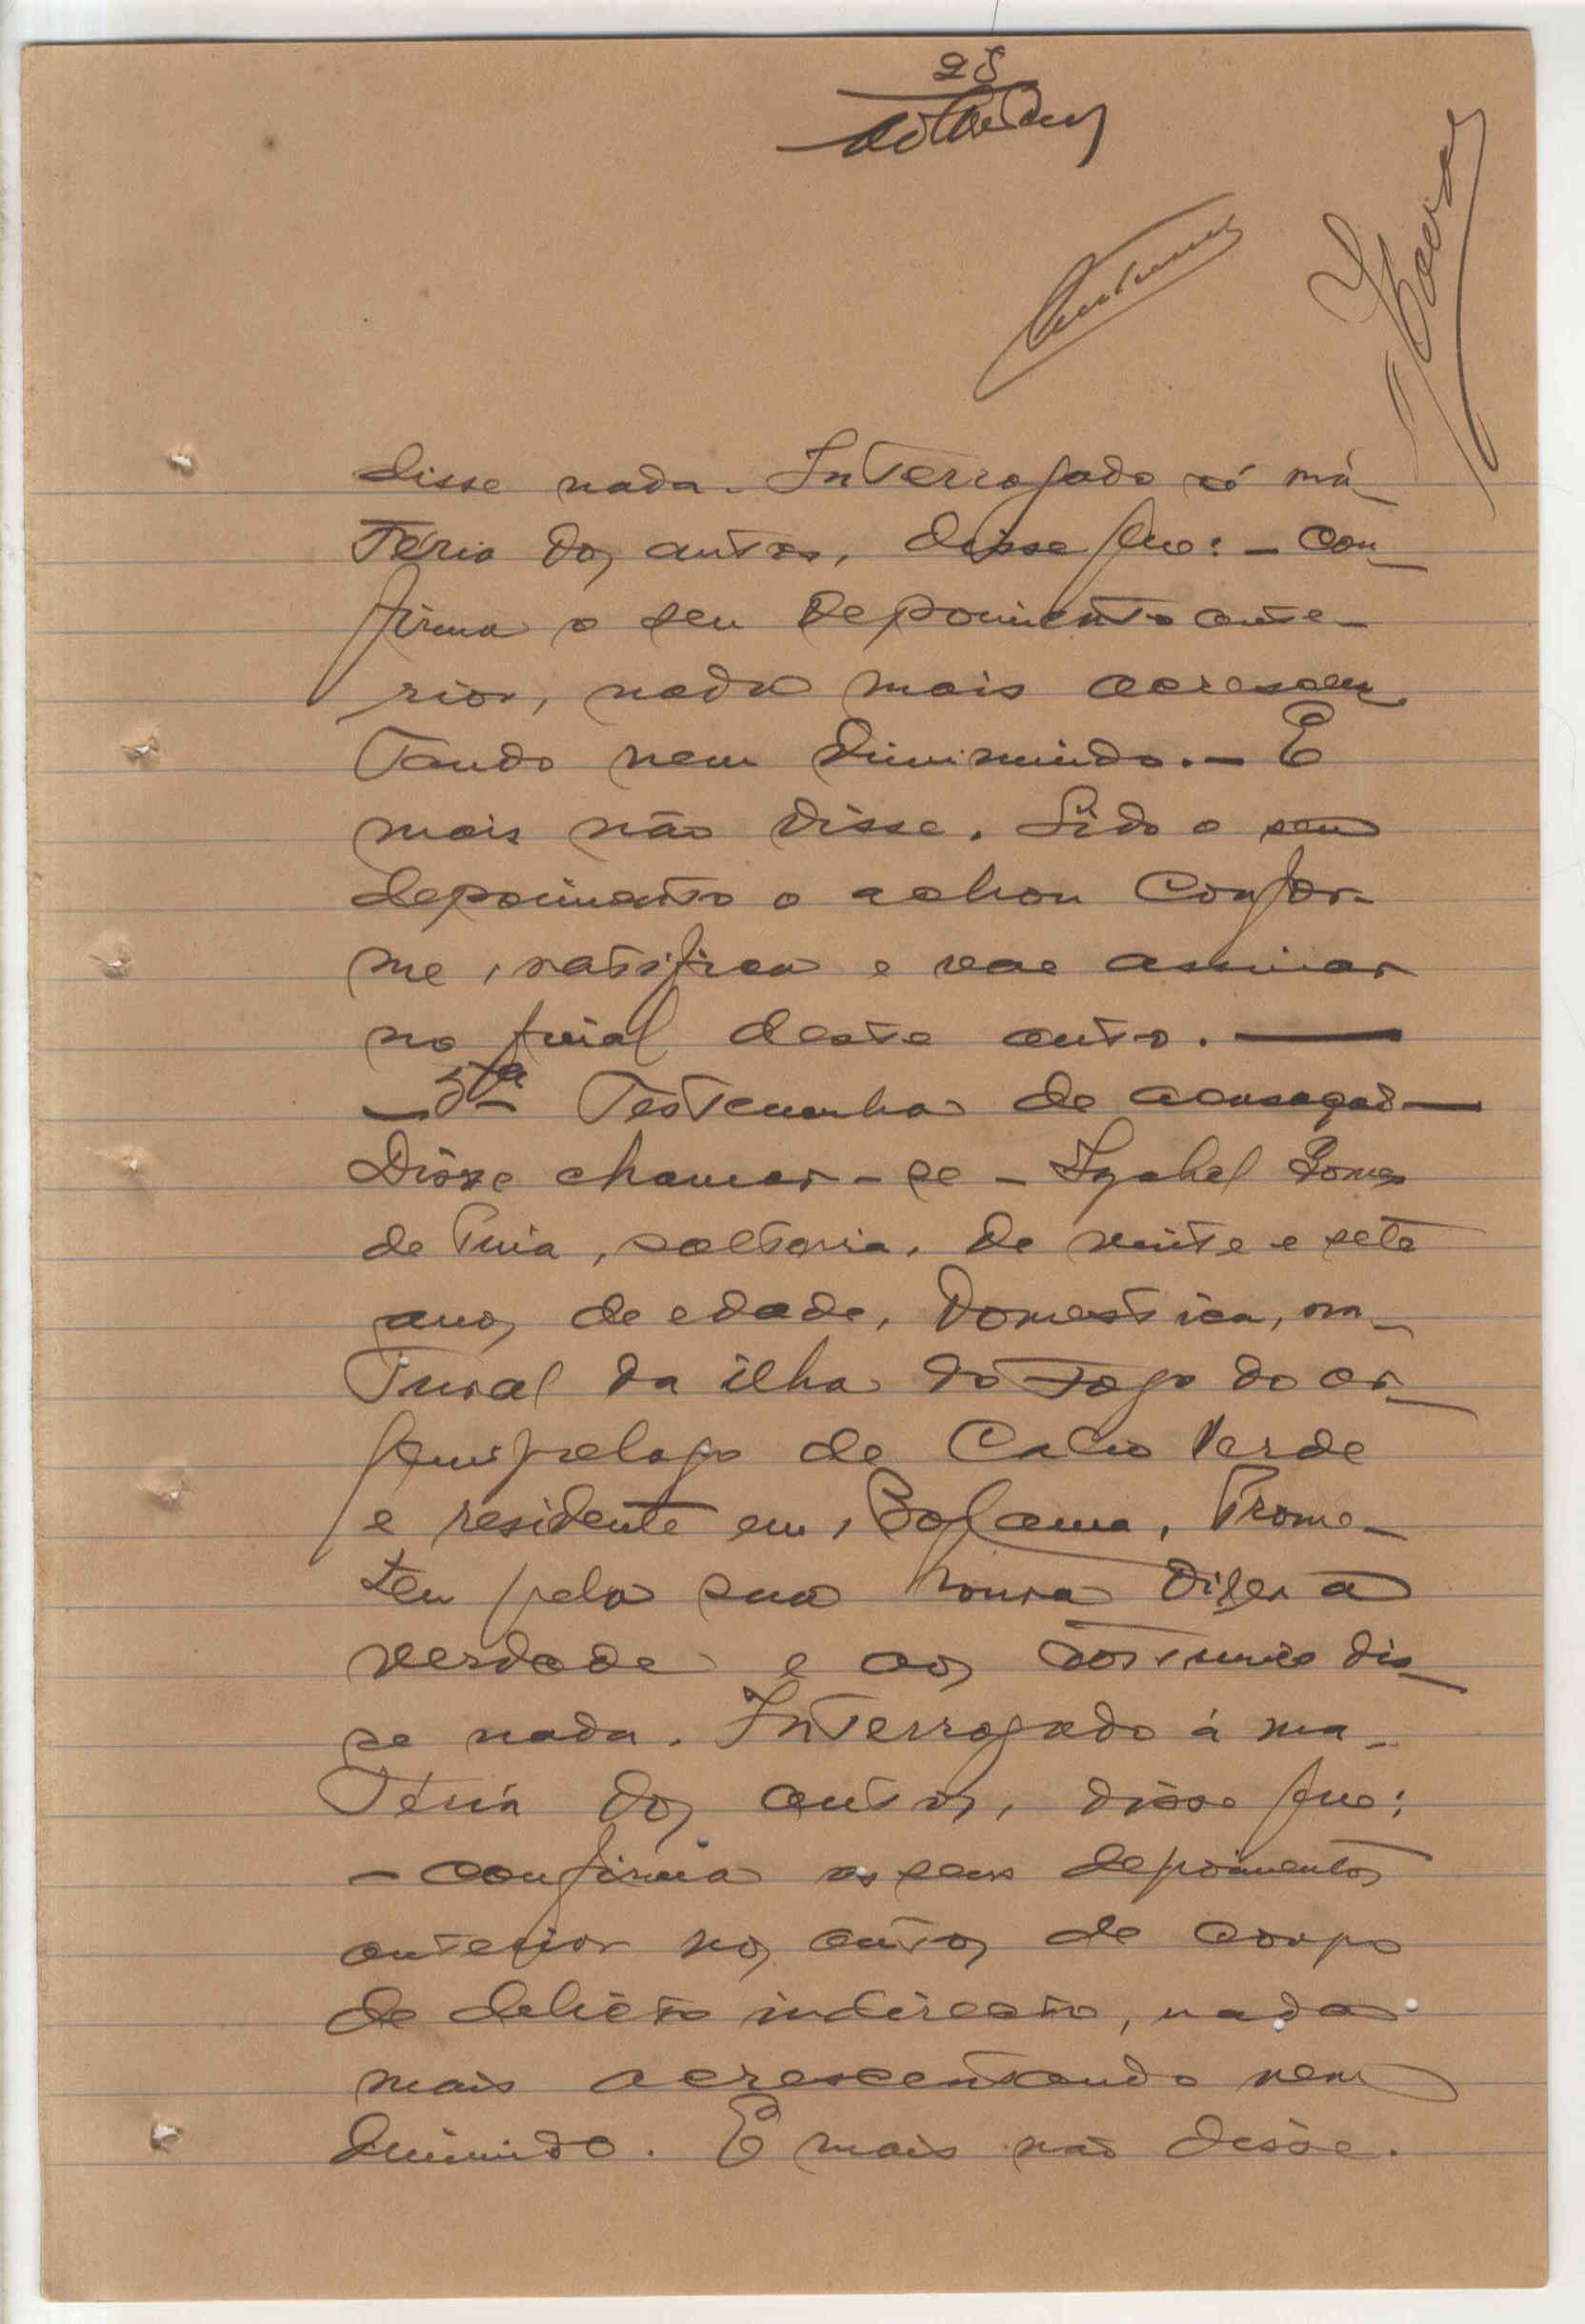 28
Antunes
disse nada. Interrogado á má-
teria dos autos, disse que: - con-
firma o seu depoimento ante-
rior, nada mais acrescen-
tando nem diminuindo. - E
mais não disse. Lido o seu
depoimento o achou confor-
me, ratifica e vae assinar
no final deste auto. —
- 5ª Testemunha de acusação -
Disse chamar-se - Izabel Gomes
de Pina, solteria, de vinte e sete
anos de edade, domestica, na-
tural da ilha do Fogo do ar-
quipelago de Cabo Verde
e residente em, Bolama, Prome-
teu pela sua honra dizer a
verdade e aos costumes dis-
se nada. Interrogado á ma-
teria dos autos, disse que:
- confirma os seus depoimentos
anterior nos autos de corpo
de delicto indirecto, nada
mais acrescentando nem
diminuido. E mais não disse.